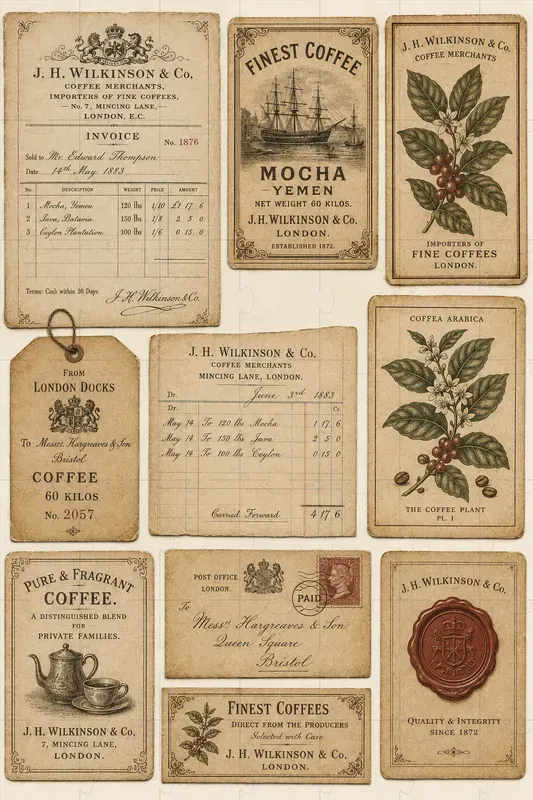 J. H. WILKINSON & Co.
COFFEE MERCHANTS,
IMPORTERS OF FINE COFFEES,
No. 7, MINCING LANE,
LONDON, E.C.
INVOICE
No. 1876
Sold to Mr. Edward Thompson
Date 14th May 1883
No. DESCRIPTION WEIGHT PRICE AMOUNT
1 Mocha, Yemen 120 lbs 1/10 £1 17 6
2 Java, Batavia 150 lbs 1/8 2 5 0
3 Ceylon Plantation 100 lbs 1/6 0 15 0
Terms: Cash within 30 Days.
J. H. Wilkinson & Co.
FINEST COFFEE
MOCHA
YEMEN
NET WEIGHT 60 KILOS.
J. H. WILKINSON & Co.
LONDON.
ESTABLISHED 1872.
J. H. WILKINSON & Co.
COFFEE MERCHANTS
IMPORTERS OF
FINE COFFEES
LONDON.
FROM
LONDON DOCKS
To Messrs. Hargreaves & Son
Bristol
COFFEE
60 KILOS
No. 2057
J. H. WILKINSON & Co.
COFFEE MERCHANTS
MINCING LANE, LONDON.
Dr. June 3rd 1883
Dr. Cr.
May 14 To 120 lbs Mocha 1 17 6
May 14 To 150 lbs Java 2 5 0
May 14 To 100 lbs Ceylon 0 15 0
Carried Forward 4 17 6
COFFEA ARABICA
THE COFFEE PLANT
PL. 1
PURE & FRAGRANT
COFFEE.
A DISTINGUISHED BLEND
FOR
PRIVATE FAMILIES.
J. H. WILKINSON & Co.
7, MINCING LANE,
LONDON.
POST OFFICE
LONDON.
PAID
To
Messrs. Hargreaves & Son
Queen Square
Bristol
FINEST COFFEES
DIRECT FROM THE PRODUCERS
Selected with Care
J. H. WILKINSON & Co.
LONDON.
J. H. WILKINSON & Co.
QUALITY & INTEGRITY
SINCE 1872